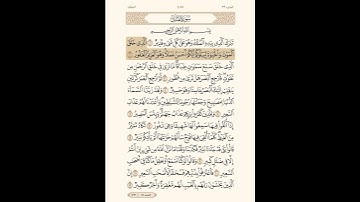 سُورَةُ الْمُلْكِ
بِسْمِ اللَّهِ الرَّحْمَٰنِ الرَّحِيمِ
تَبَٰرَكَ الَّذِي بِيَدِهِ الْمُلْكُ وَهُوَ عَلَىٰ كُلِّ شَيْءٍ قَدِيرٌ ١ الَّذِي خَلَقَ
الْمَوْتَ وَالْحَيَوٰةَ لِيَبْلُوَكُمْ أَيُّكُمْ أَحْسَنُ عَمَلًا وَهُوَ الْعَزِيزُ الْغَفُورُ ٢
الَّذِي خَلَقَ سَبْعَ سَمَٰوَٰتٍ طِبَاقًا مَّا تَرَىٰ فِي خَلْقِ الرَّحْمَٰنِ مِن
تَفَٰوُتٍ فَارْجِعِ الْبَصَرَ هَلْ تَرَىٰ مِن فُطُورٍ ٣ ثُمَّ ارْجِعِ الْبَصَرَ
كَرَّتَيْنِ يَنقَلِبْ إِلَيْكَ الْبَصَرُ خَاسِئًا وَهُوَ حَسِيرٌ ٤ وَلَقَدْ زَيَّنَّا السَّمَاءَ
الدُّنْيَا بِمَصَٰبِيحَ وَجَعَلْنَٰهَا رُجُومًا لِّلشَّيَٰطِينِ وَأَعْتَدْنَا لَهُمْ عَذَابَ
السَّعِيرِ ٥ وَلِلَّذِينَ كَفَرُوا بِرَبِّهِمْ عَذَابُ جَهَنَّمَ وَبِئْسَ الْمَصِيرُ ٦
إِذَا أُلْقُوا فِيهَا سَمِعُوا لَهَا شَهِيقًا وَهِيَ تَفُورُ ٧ تَكَادُ تَمَيَّزُ
مِنَ الْغَيْظِ كُلَّمَا أُلْقِيَ فِيهَا فَوْجٌ سَأَلَهُمْ خَزَنَتُهَا أَلَمْ يَأْتِكُمْ نَذِيرٌ ٨
قَالُوا بَلَىٰ قَدْ جَاءَنَا نَذِيرٌ فَكَذَّبْنَا وَقُلْنَا مَا نَزَّلَ اللَّهُ مِن شَيْءٍ إِنْ أَنتُمْ
إِلَّا فِي ضَلَٰلٍ كَبِيرٍ ٩ وَقَالُوا لَوْ كُنَّا نَسْمَعُ أَوْ نَعْقِلُ مَا كُنَّا فِي أَصْحَٰبِ
السَّعِيرِ ١٠ فَاعْتَرَفُوا بِذَنبِهِمْ فَسُحْقًا لِّأَصْحَٰبِ السَّعِيرِ ١١ إِنَّ
الَّذِينَ يَخْشَوْنَ رَبَّهُم بِالْغَيْبِ لَهُم مَّغْفِرَةٌ وَأَجْرٌ كَبِيرٌ ١٢